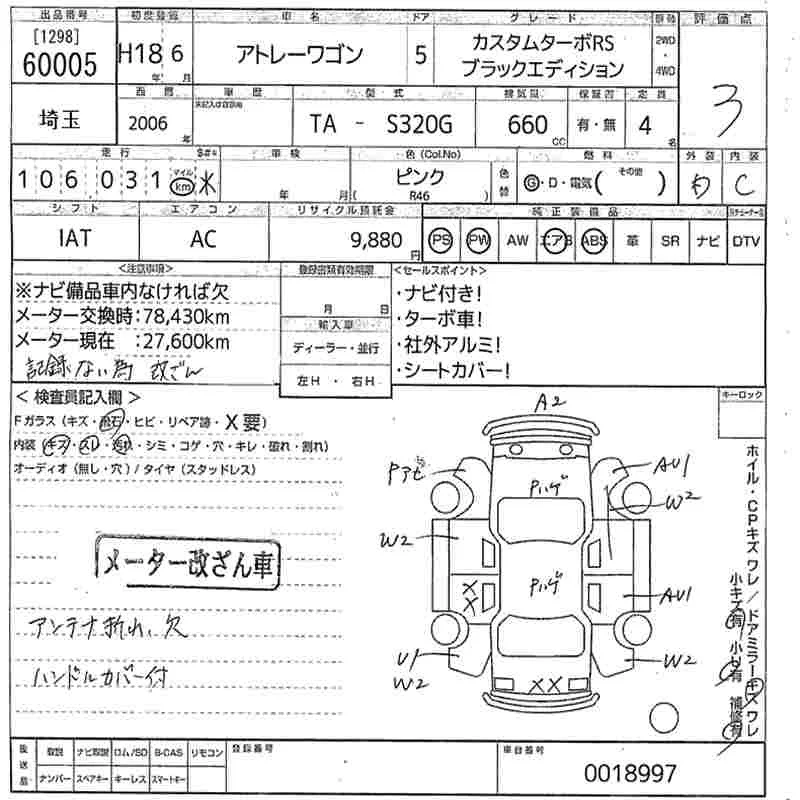 出品番号 初度登録 車名 ドア グレード 駆動 評価点
[1298]
60005
H18 6
年 月
アトレーワゴン
5
カスタムターボRS
ブラックエディション
2WD
・
4WD
3
西暦 車歴 型式 排気量 保証書 定員
埼玉
2006
年
TA - S320G
660
CC
有・無
4
名
走行 車検 色(Col.No) 燃料 外装 内装
106031
マイル
km
$#*
*
年 月
ピンク
( R46 )
色替
G・D・電気( その他 )
C
シフト エアコン リサイクル預託金 純正装備品
IAT
AC
9,880
円
PS PW AW エアB ABS 革 SR ナビ DTV
<注意事項>
※ナビ備品車内なければ欠
メーター交換時:78,430km
メーター現在 :27,600km
記録ない為 改ざん
登録書類有効期限
月 日
輸入車
ディーラー・並行
左H ・ 右H
<セールスポイント>
・ナビ付き!
・ターボ車!
・社外アルミ!
・シートカバー!
<検査員記入欄>
Fガラス(キズ・飛石・ヒビ・リペア跡・X要)
内装(キズ・スレ・汚れ・シミ・コゲ・穴・キレ・破れ・割れ)
オーディオ(無し・穴)/タイヤ(スタッドレス)
メーター改ざん車
アンテナ折れ、欠
ハンドルカバー付
キーロック
A2
Pハゲ
AU1
W2
W2
Pハゲ
X
X
AU1
U1
W2
W2
XX
ホイル・CPキズワレ/ドアミラーキズワレ
小キズ有 小U有 補修有
後送品
取説 ナビ取説 ロム/SD B-CAS リモコン
ナンバー スペアキー キーレス スマートキー
登録番号
車台番号
0018997